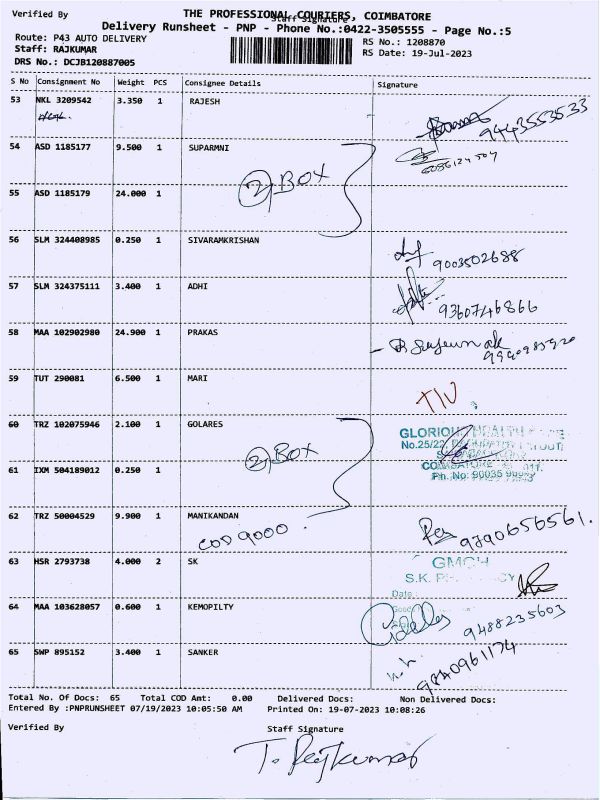 Verified By
Staff Signature
THE PROFESSIONAL COURIERS, COIMBATORE
Delivery Runsheet - PNP - Phone No.:0422-3505555 - Page No.:5
Route: P43 AUTO DELIVERY
Staff: RAJKUMAR
DRS No.: DCJB120887005
RS No.: 1208870
RS Date: 19-Jul-2023
S No Consignment No Weight PCS Consignee Details Signature
53 NKL 3209542 3.350 1 RAJESH
9443553533
54 ASD 1185177 9.500 1 SUPARMNI
2 BOX
55 ASD 1185179 24.000 1
56 SLM 324408985 0.250 1 SIVARAMKRISHAN
9003502688
57 SLM 324375111 3.400 1 ADHI
9360746866
58 MAA 102902980 24.900 1 PRAKAS
59 TUT 290081 6.500 1 MARI
60 TRZ 102075946 2.100 1 GOLARES
2 BOX
GLORIOU
No.25/22,
61 IXM 504189012 0.250 1
Ph. No: 90035
62 TRZ 50004529 9.900 1 MANIKANDAN
COD 9000
9790656561.
63 HSR 2793738 4.000 2 SK
GMCH
S.K. PHARMACY
Date
64 MAA 103628057 0.600 1 KEMOPILTY
9488235603
65 SWP 895152 3.400 1 SANKER
9840961174
Total No. Of Docs: 65 Total COD Amt: 0.00 Delivered Docs: Non Delivered Docs:
Entered By :PNPRUNSHEET 07/19/2023 10:05:50 AM Printed On: 19-07-2023 10:08:26
Verified By Staff Signature
T. Rajkumar